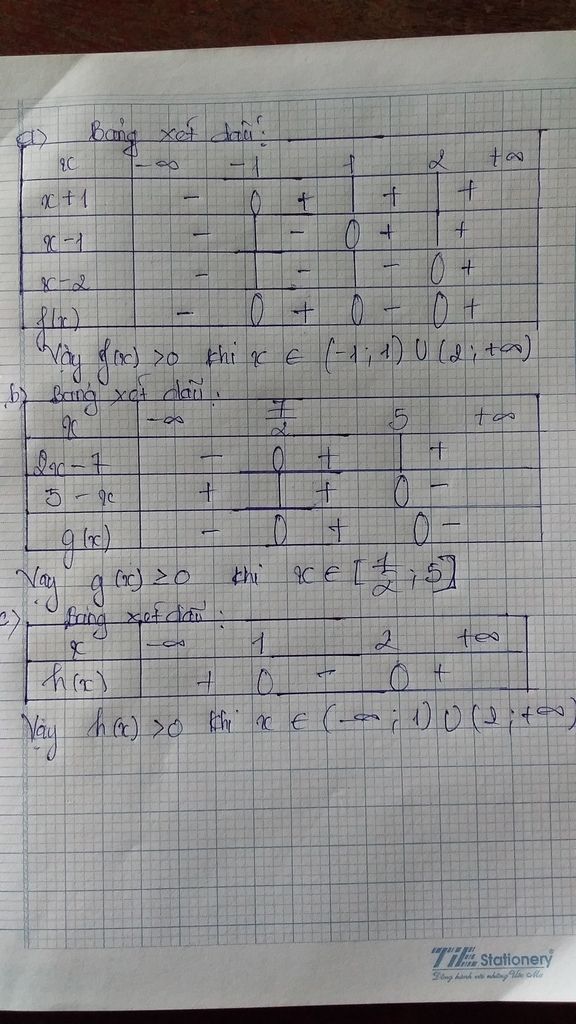 a) Bảng xét dấu:
x -∞ -1 1 2 +∞
x+1 - 0 + | + | +
x-1 - | - 0 + | +
x-2 - | - | - 0 +
f(x) - 0 + 0 - 0 +
Vậy f(x) >0 khi x ∈ (-1; 1) ∪ (2; +∞)
b) Bảng xét dấu:
x -∞ 7/2 5 +∞
2x-7 - 0 + | +
5-x + | + 0 -
g(x) - 0 + 0 -
Vậy g(x) ≥0 khi x ∈ [7/2; 5]
c) Bảng xét dấu:
x -∞ 1 2 +∞
h(x) + 0 - 0 +
Vậy h(x) >0 khi x ∈ (-∞; 1) ∪ (2; +∞)
TiTi Stationery
Đồng hành với những Ước Mơ